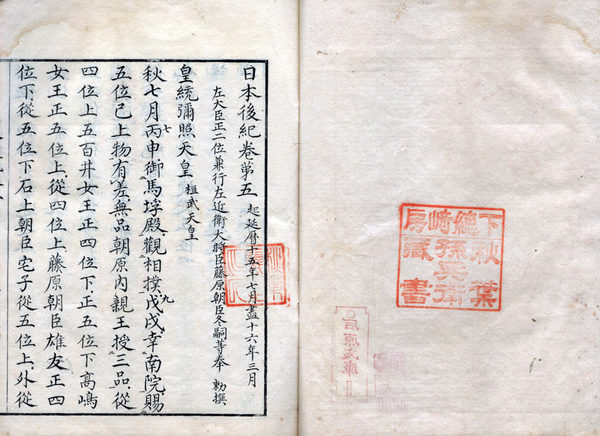 下總崎房
秋葉孫兵衛
藏書
日本後紀卷第五 起延曆十五年七月盡十六年三月
左大臣正二位兼行左近衛大將臣藤原朝臣冬嗣等奉 勅撰
皇統彌照天皇 桓武天皇
秋七月丙申七御馬埒殿觀相撲戊戌九幸南院賜
五位已上物有差無品朝原内親王授三品從
四位上五百井女王正四位下正五位下高嶋
女王正五位上從四位上藤原朝臣雄友正四
位下從五位下石上朝臣宅子從五位上外從